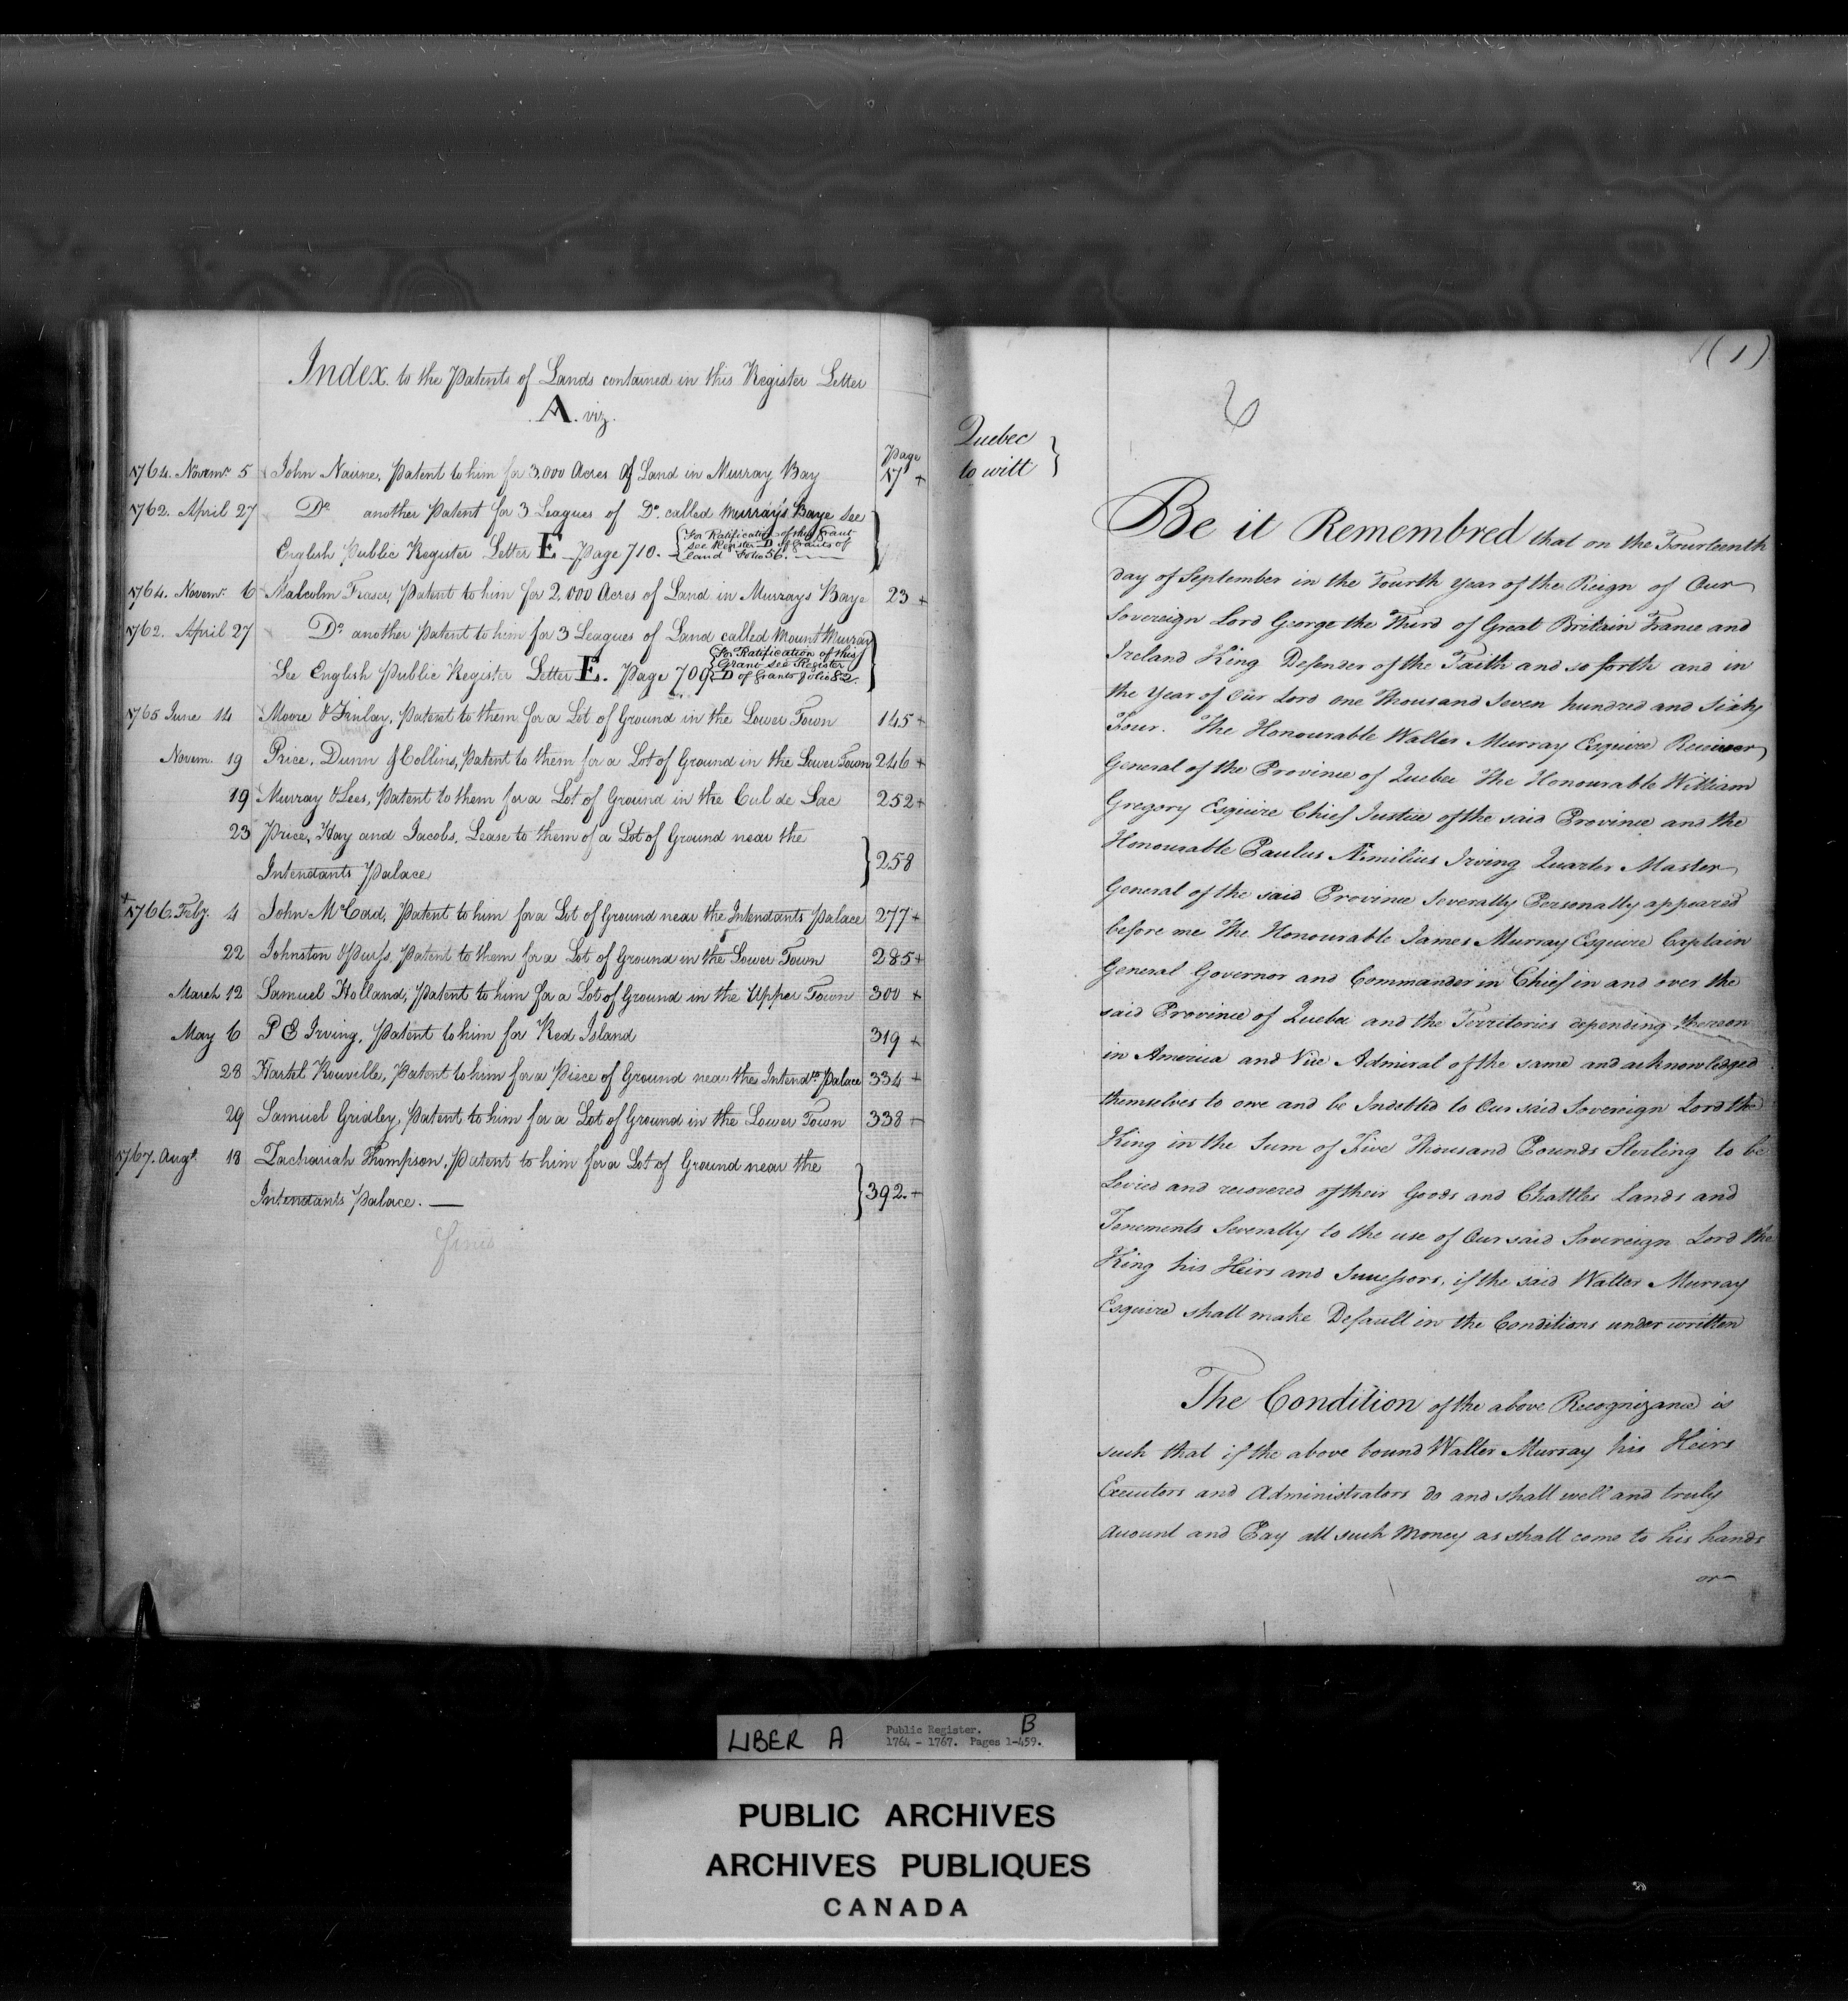 Index to the Patents of Lands contained in this Register Letter
A. viz.
Page
1764. Novemr. 5 John Nairne, Patent to him for 3,000 Acres of Land in Murray Bay 17 +
1762. April 27 Do. another Patent for 3 Leagues of Do. called Murray's Baye see
English Public Register Letter E Page 710. {For Ratification of this Grant
see Register D of Grants of
land Folio 56.
1764. Novemr. 6 Malcolm Fraser, Patent to him for 2,000 Acres of Land in Murrays Baye 23 +
1762. April 27 Do. another Patent to him for 3 Leagues of Land called Mount Murray
See English Public Register Letter E. Page 709 {For Ratification of this
Grant see Register
D of Grants folio 82.
1765 June 14 Moore & Finlay, Patent to them for a Lot of Ground in the Lower Town 145 +
Novem. 19 Price, Dunn & Collins, Patent to them for a Lot of Ground in the Lower Town 246 +
19 Murray & Lees, Patent to them for a Lot of Ground in the Cul de Sac 252 +
23 Price, Hay and Jacobs, Lease to them of a Lot of Ground near the
Intendants Palace } 258
+ 1766. Feby. 4 John McCord, Patent to him for a Lot of Ground near the Intendants Palace 277 +
22 Johnston & Purss, Patent to them for a Lot of Ground in the Lower Town 285 +
March 12 Samuel Holland, Patent to him for a Lot of Ground in the Upper Town 300 +
May 6 P E Irving, Patent to him for Red Island 319 +
28 Hartel Rouville, Patent to him for a Piece of Ground near the Intendts. Palace 334 +
29 Samuel Gridley, Patent to him for a Lot of Ground in the Lower Town 338 +
1767. Augt. 18 Zachariah Thompson, Patent to him for a Lot of Ground near the
Intendants Palace. — } 392. +
finis
(1)
Quebec
to witt }
Be it Remembred that on the Fourteenth
day of September in the Fourth Year of the Reign of Our
Sovereign Lord George the Third of Great Britain France and
Ireland King Defender of the Faith and so forth and in
the Year of Our Lord One Thousand Seven hundred and Sixty
Four. The Honourable Walter Murray Esquire Receiver
General of the Province of Quebec The Honourable William
Gregory Esquire Chief Justice of the said Province and the
Honourable Paulus Æmilius Irving Quarter Master
General of the said Province Severally Personally appeared
before me The Honourable James Murray Esquire Captain
General Governor and Commander in Chief in and over the
said Province of Quebec and the Territories depending thereon
in America and Vice Admiral of the same and acknowledged
themselves to owe and be Indebted to Our said Sovereign Lord the
King in the Sum of Five Thousand Pounds Sterling to be
Levied and recovered of their Goods and Chattles Lands and
Tenements Severally to the use of Our said Sovereign Lord the
King his Heirs and Successors, if the said Walter Murray
Esquire shall make Default in the Conditions under written
The Condition of the above Recognizance is
such that if the above bound Walter Murray his Heirs
Executors and Administrators do and shall well and truly
Account and Pay all such Money as shall come to his hands
or
LIBER A Public Register. B
1764 - 1767. Pages 1-459.
PUBLIC ARCHIVES
ARCHIVES PUBLIQUES
CANADA